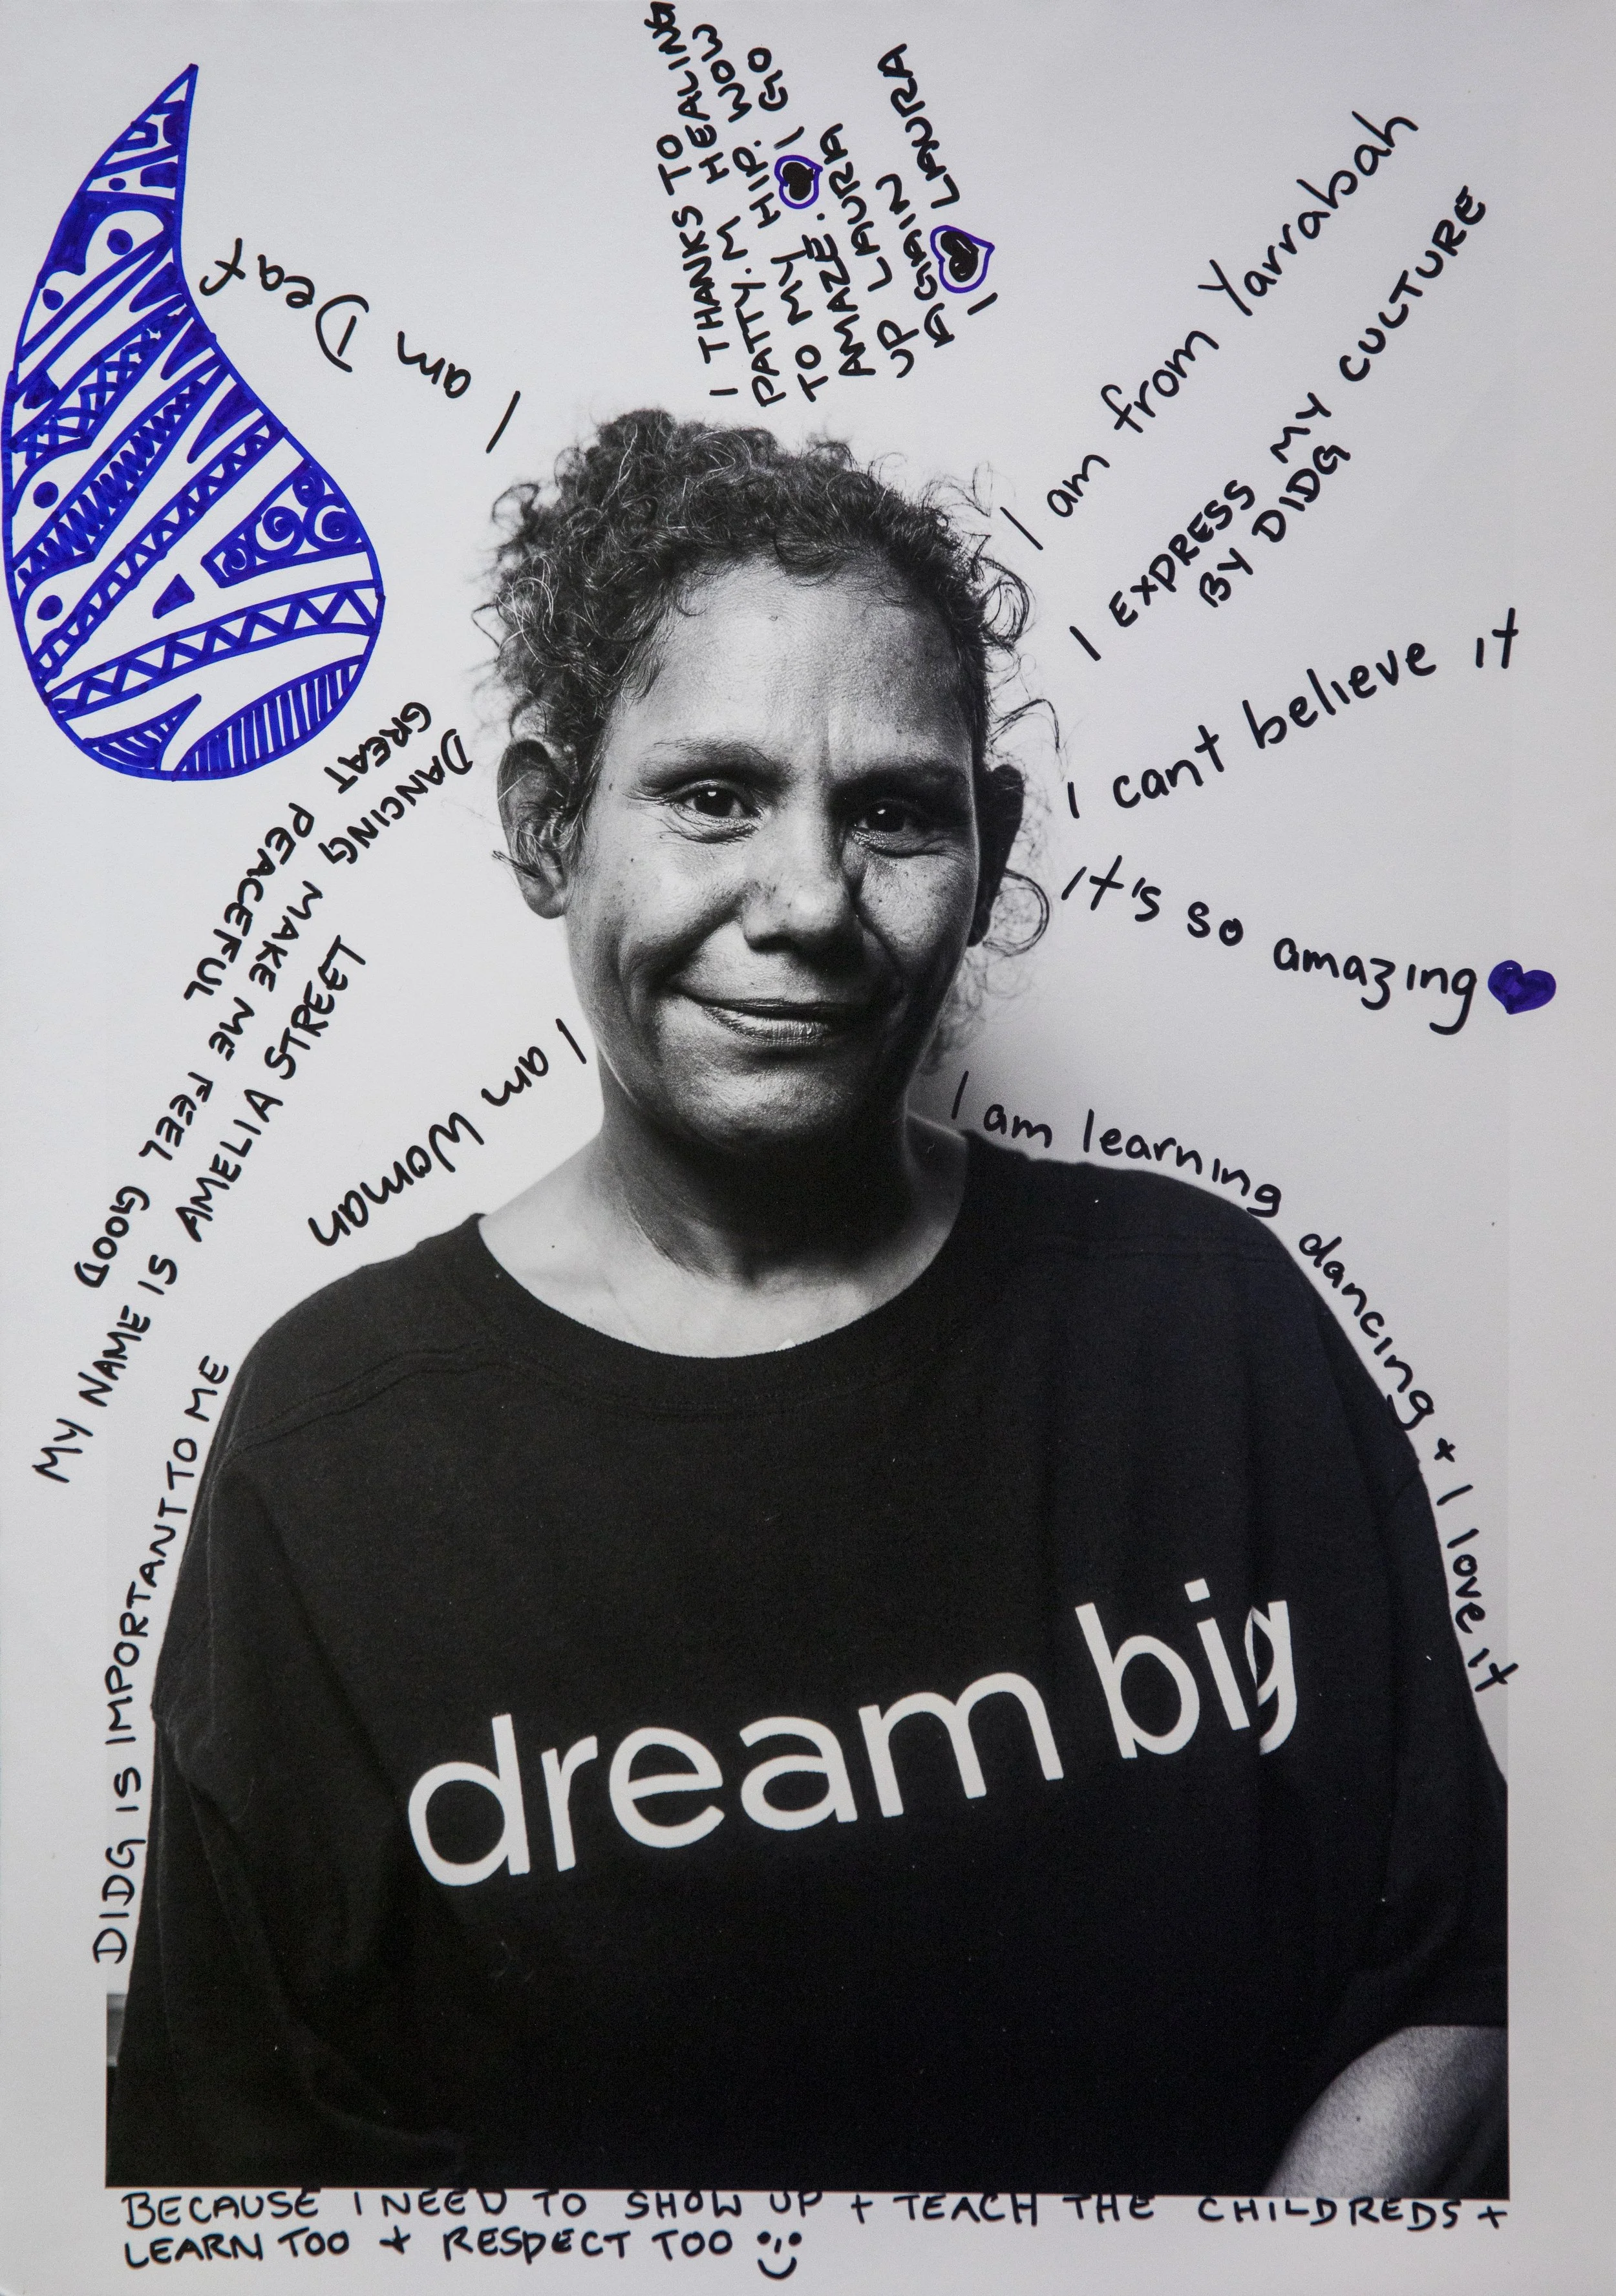 I THANKS TO HEALING
PATTY.M HEALING
TO MY HIP. WOW
AMAZE. I GO
UP LAURA
AGAIN
I LAURA
I am Deaf
I am from Yarrabah
I EXPRESS MY CULTURE
BY DIDG
I can't believe it
It's so amazing
I am learning dancing + I love it
DANCING MAKE ME FEEL GOOD
GREAT PEACEFUL
MY NAME IS AMELIA STREET
I am Woman
DIDG IS IMPORTANT TO ME
dream big
BECAUSE I NEED TO SHOW UP + TEACH THE CHILDREDS +
LEARN TOO + RESPECT TOO